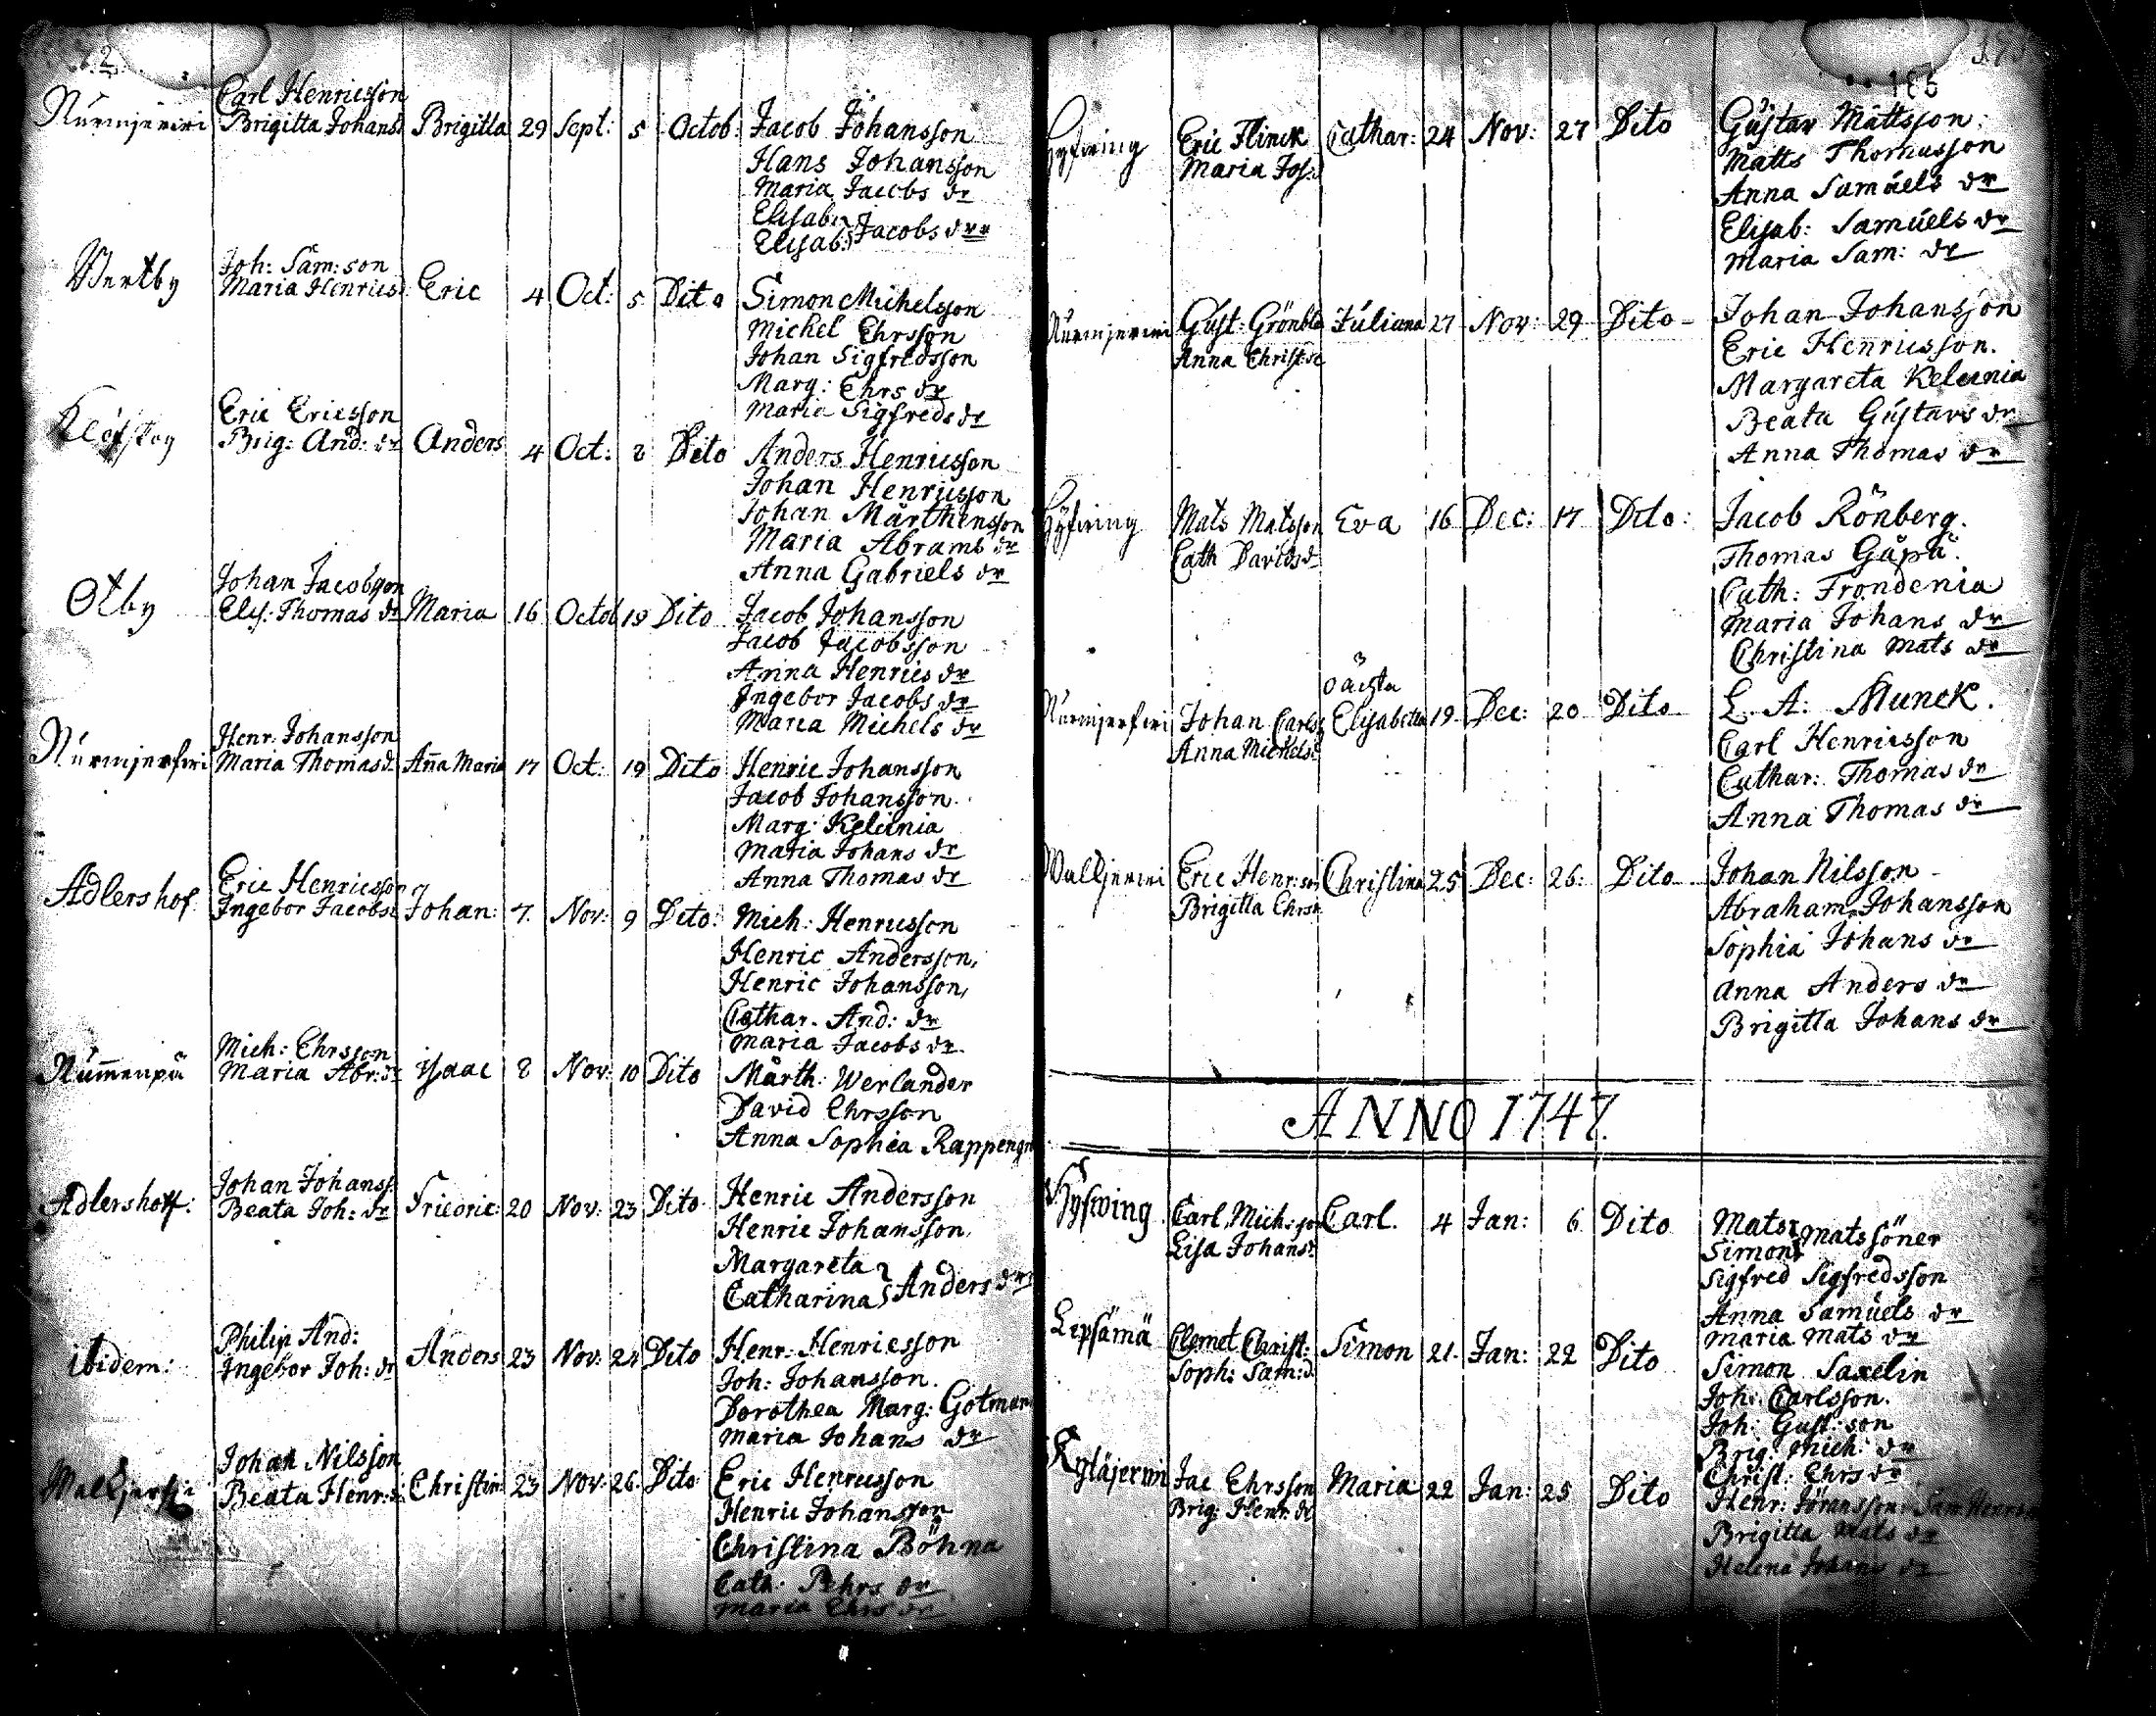 Carl Henricsson
Nurmijerwi Brigitta Johans Brigitta 29 Sept: 5 Octob: Jacob Johansson
Hans Johansson
Maria Jacobs dr
Elisab:
Elisab: Jacobs drr
Joh: Sam: son
Wertby Maria Henrics Eric 4 Oct: 5 Dito Simon Michelsson
Michel Ehrsson
Johan Sigfredsson
Marg: Ehrs dr
Maria Sigfreds dr
Eric Ericsson
Brig: And: dr Anders 4 Oct: 8 Dito Anders Henricsson
Johan Henricsson
Johan Mårthensson
Maria Abrams dr
Anna Gabriels dr
Johan Jacobsson
Otby Elis: Thomas dr Maria 16 Octob 19 Dito Jacob Johansson
Jacob Jacobsson
Anna Henrics dr
Ingebor Jacobs dr
Maria Michels dr
Henr: Johansson
Nurmjerfwi Maria Thomas d. Aña Maria 17 Oct: 19 Dito Henric Johansson
Jacob Johansson
Marg: Kelcinia
Maria Johans dr
Anna Thomas dr
Eric Henricsson
Adlershof Ingebor Jacobs Johan: 7. Nov: 9 Dito: Mich: Henricsson
Henric Andersson,
Henric Johansson,
Cathar. And: dr
Maria Jacobs dr.
Mich: Ehrsson
Num̄enpä Maria Abr: dr Isaac 8 Nov: 10 Dito Mårth: Werlander
David Ehrsson
Anna Sophia
Johan Johanss.
Adlershoff: Beata Joh: dr Friedric: 20 Nov: 23 Dito Henric Andersson
Henric Johansson,
Margareta
Catharina Anders drr
Philip And:
ibidem: Ingebor Joh: dr Anders 23 Nov: 24 Dito Henr: Henricsson
Joh: Johansson.
Dorothea Marg: Gotman
Maria Johans dr
Johan Nilsson
Walkjerfwi Beata Henr: d. Christin: 23 Nov: 26. Dito Eric Henricsson
Henric Johansson
Christina Böhna
Cath: Pehrs dr
Maria Ehrs dr
186
Hyfwing Eric Flinck Cathar: 24 Nov: 27 Dito Gustav Mattsson
Maria Jos: Matts Thomasson
Anna Samuels dr
Elisab: Samuels dr
Maria Sam: dr
Nurmjerwi Gust: Grönbla Juliana 27 Nov: 29 Dito Johan Johansson
Anna Christ: Eric Henricsson.
Margareta Kelcinia
Beata Gustavs dr
Anna Thomas dr
Hyfwing Mats Matsson Eva 16 Dec: 17 Dito: Jacob Rönberg.
Cath Davids d Thomas Gåpå
Cath: Frondenia
Maria Johans dr
Christina Mats dr
oächta
Nurmjerfwi Johan Carls Elisabetha 19. Dec: 20 Dito L. A: Munck.
Anna Michels Carl Henricsson
Cathar: Thomas dr
Anna Thomas dr
Walkjerwi Eric Henr: son Christina 25 Dec: 26: Dito Johan Nilsson
Brigitta Ehrs Abraham Johansson
Sophia Johans dr
Anna Anders dr
Brigitta Johans dr
ANNO 1747.
Hyfwing Carl Mich: son Carl. 4 Jan: 6 Dito Mats Matssöner
Lisa Johans Simon
Sigfred Sigfredsson
Anna Samuels dr
Maria Mats dr
Lepsämä Clemet Christ: Simon 21. Jan: 22 Dito Simon Saxelin
Soph: Sam: d. Joh: Carlsson.
Joh: Gust: son
Brig: Mich: dr
Christ: Ehrs dr
Kyläjerwi Jac Ehrsson Maria 22 Jan: 25 Dito Henr: Göransson
Brig: Henr: dr Brigitta Mats dr
Helena Johans dr